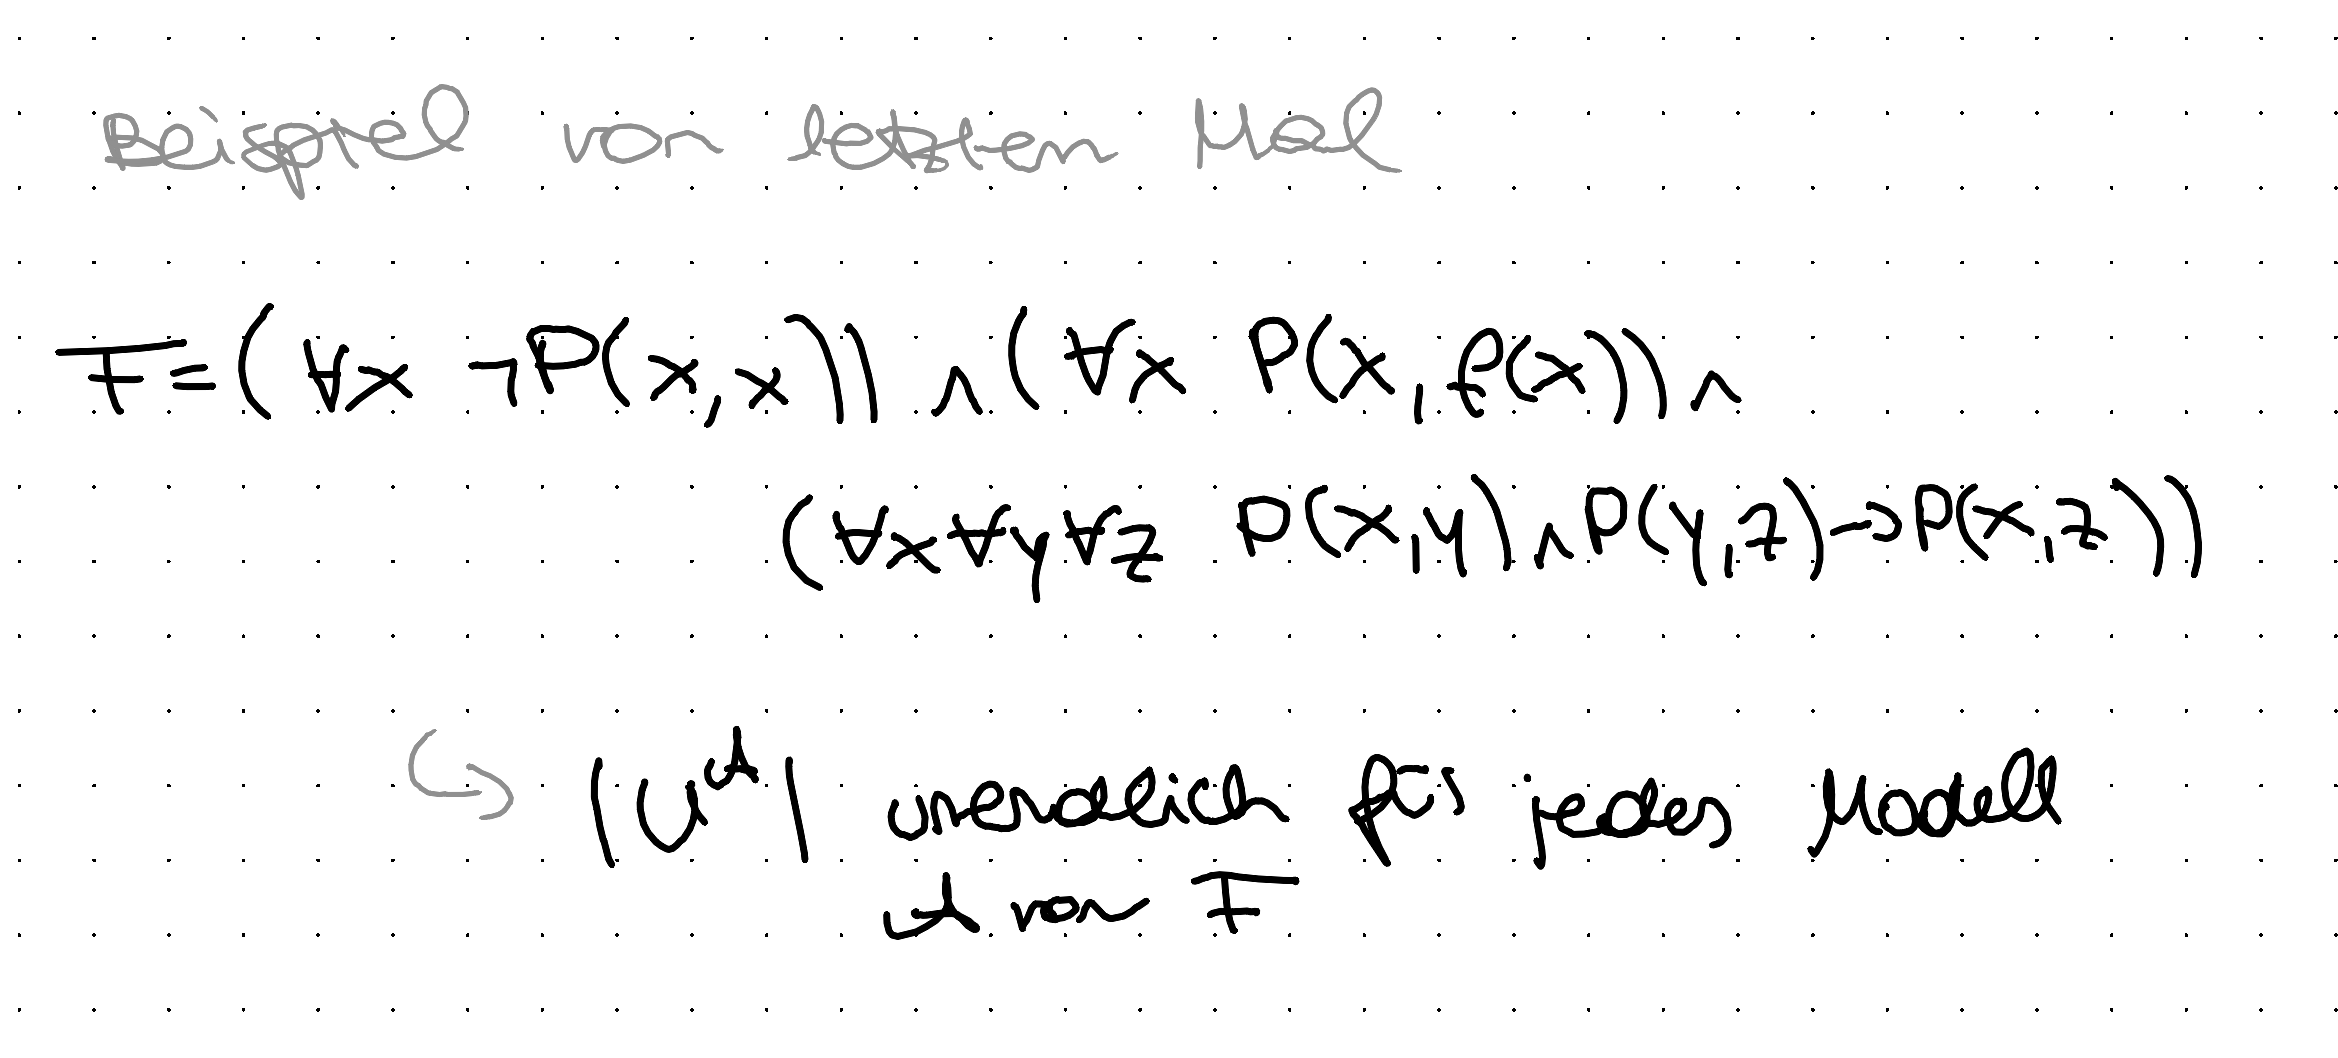 Beispiel von letztem Mal
F = (∀x ¬P(x,x)) ∧ (∀x P(x,f(x))) ∧
(∀x∀y∀z P(x,y) ∧ P(y,z) → P(x,z))
↪ |U^𝒜| unendlich für jedes Modell
𝒜 von F